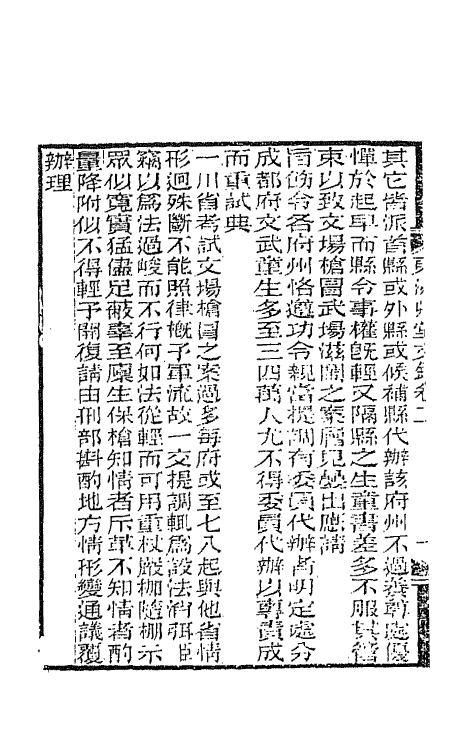 其它皆派首縣或外縣或候補縣代辦該府州不過養尊處優
憚於起早而縣令事權旣輕又隔縣之生童書差多不服其管
束以致文場槍圖武場滋鬧之案層見疊出應請
旨飭令各府州恪遵功令親當提調有委員代辦者明定處分
成都府文武童生多至三四萬人尤不得委員代辦以專責成
而重試典
一川省考試文場槍圖之案過多每府或至七八起與他省情
形迥殊斷不能照律槪予軍流故一交提調輒爲設法消弭臣
竊以爲法過峻而不行何如法從輕而可用重杖嚴枷隨棚示
眾似寬實猛儘足蔽辜至廩生保槍知情者斥革不知情者酌
量降附似不得輕予開復請由刑部斟酌地方情形變通議覆
辦理
文錄卷二
一